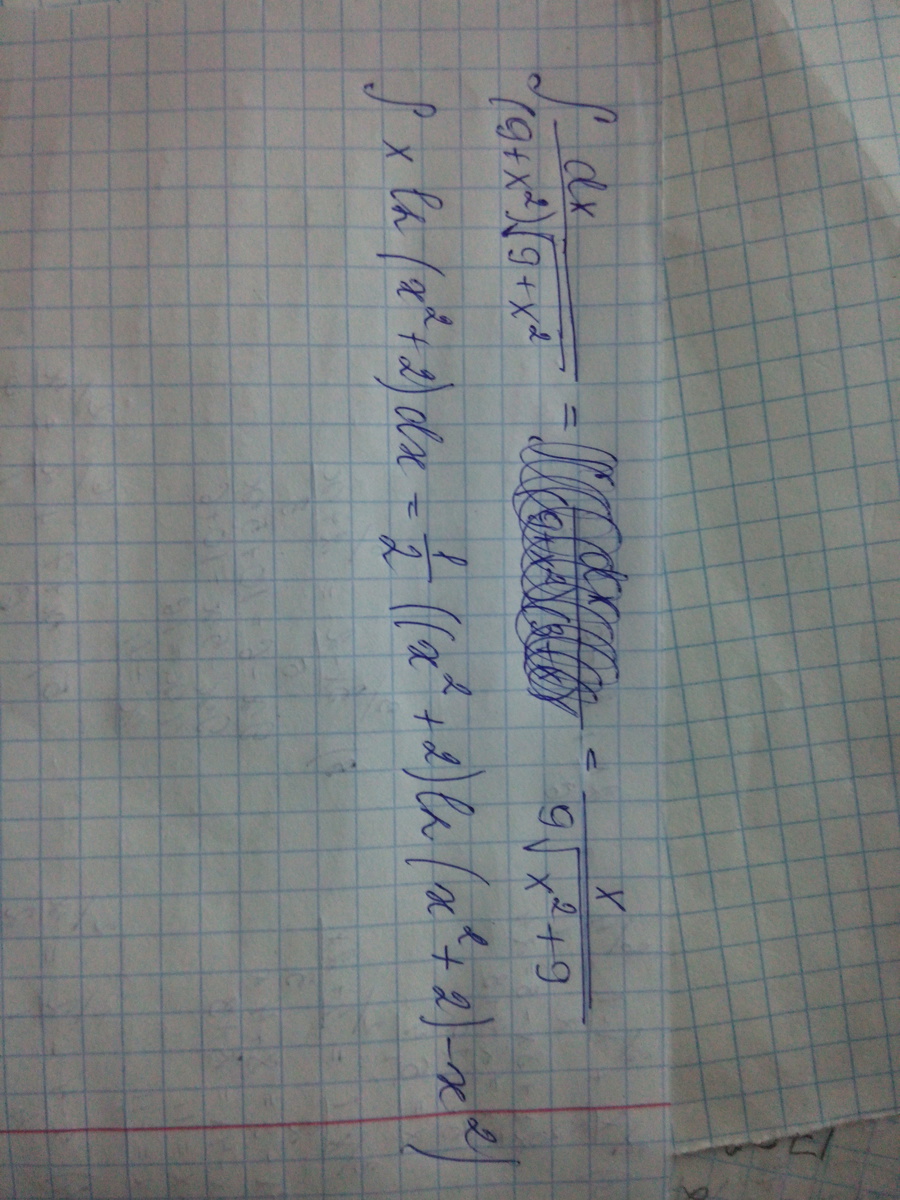 ∫ dx / ((9+x²)√(9+x²)) = = x / (9√(x²+9))
∫ x ln(x²+2)dx = 1/2 ((x²+2)ln(x²+2)-x²)